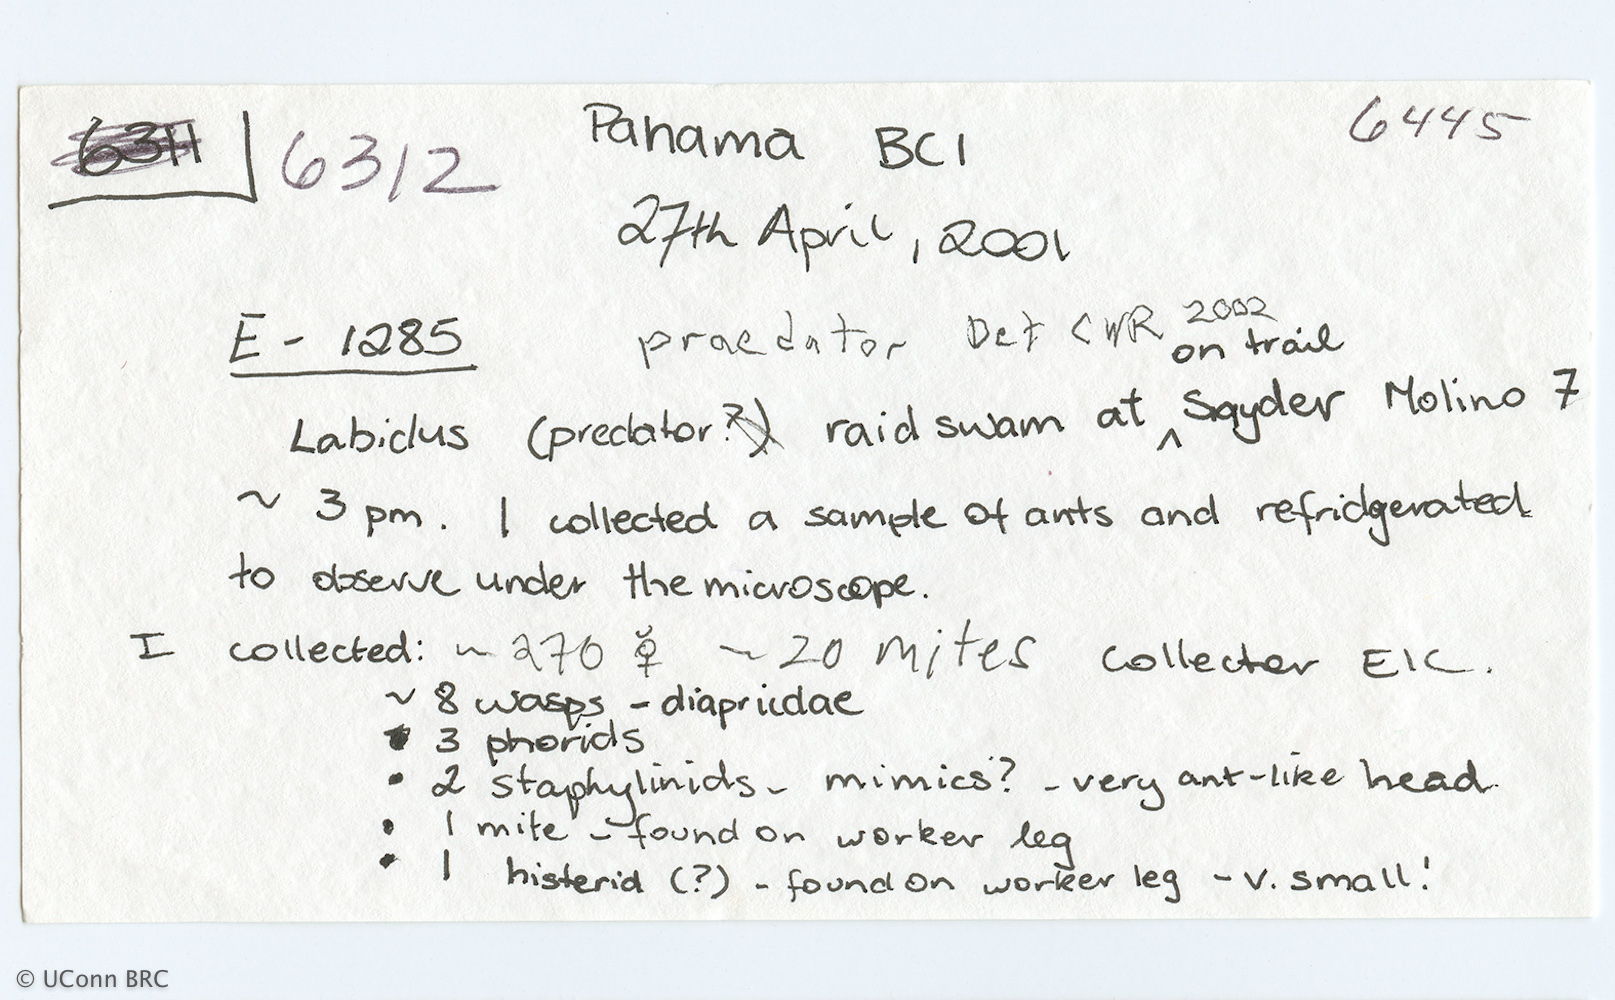 6311 6312 Panama BCI 6445
27th April, 2001
E - 1285 praedator Det CWR 2002
on trail
Labidus (predator?) raid swam at ^ Snyder Molino 7
~ 3 pm. I collected a sample of ants and refridgerated
to observe under the microscope.
I collected: ~ 270 ☿ ~ 20 mites collector EIC.
~ 8 wasps - diapriidae
• 3 phorids
• 2 staphylinids - mimics? - very ant-like head
• 1 mite - found on worker leg
• 1 histerid (?) - found on worker leg - v. small!
© UConn BRC